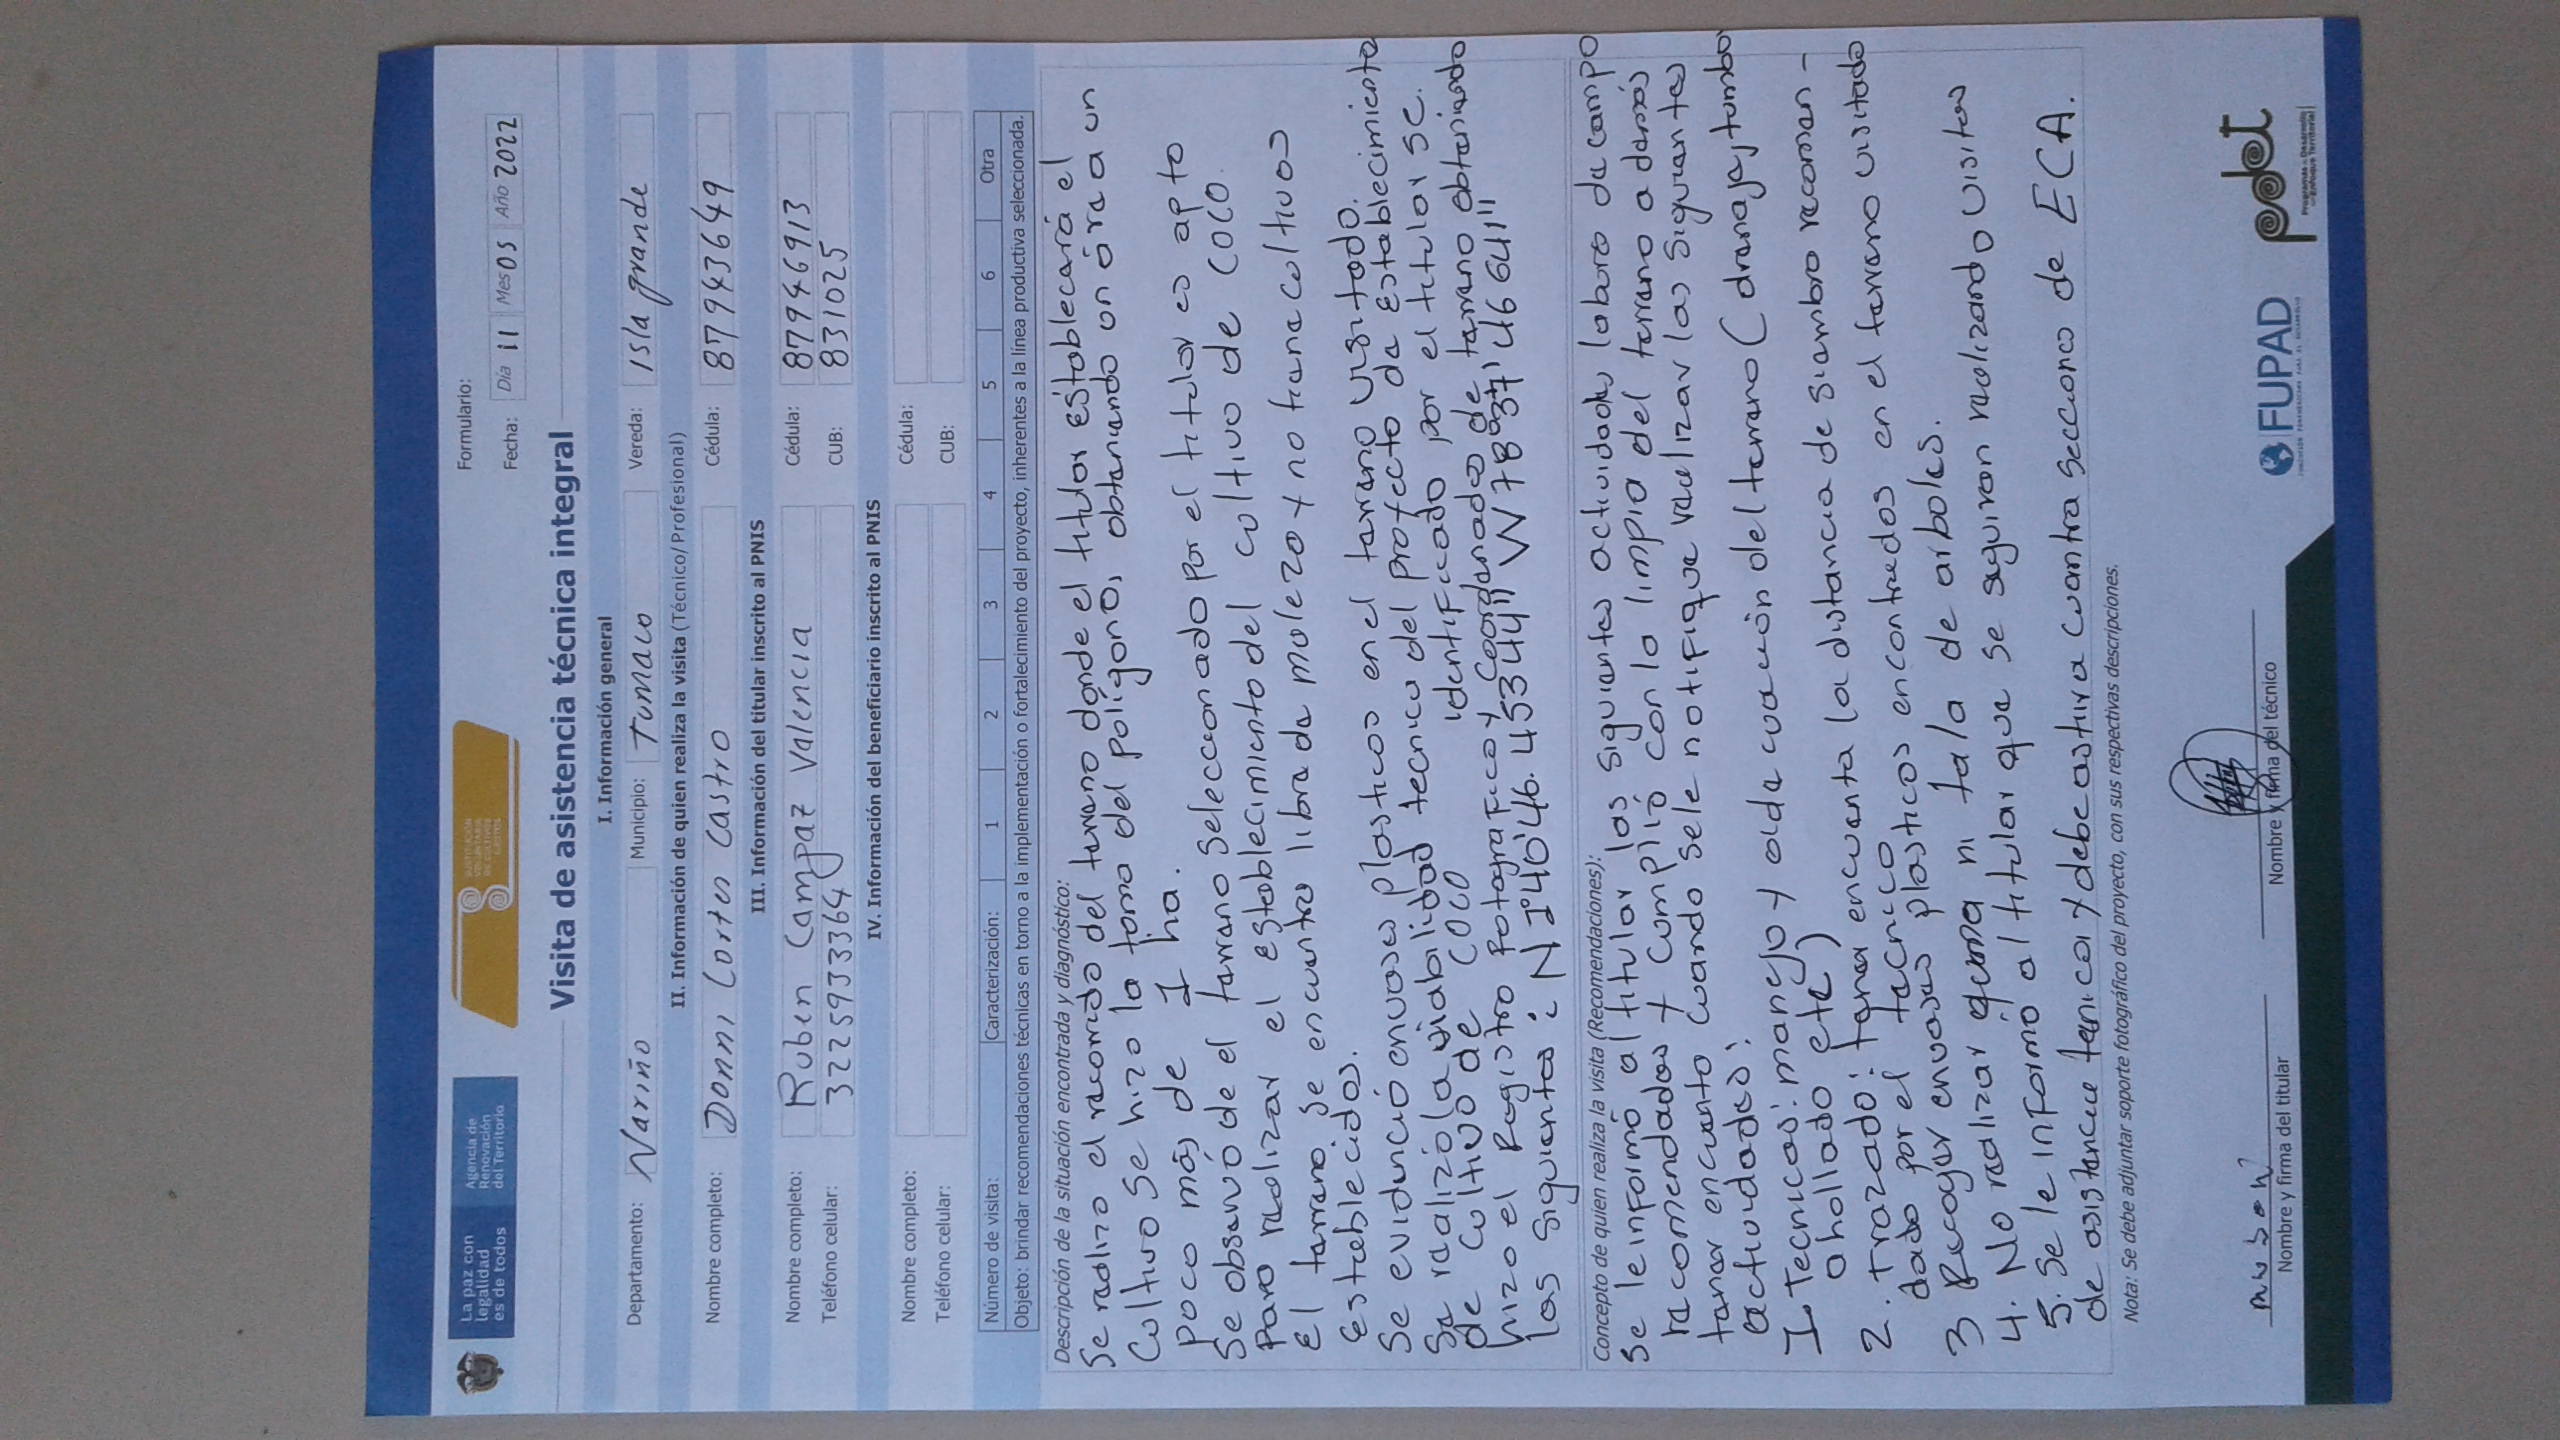 La paz con
legalidad
es de todos
Agencia de
Renovación
del Territorio
SUSTITUCIÓN
VOLUNTARIA
DE CULTIVOS
ILÍCITOS
Formulario:
Fecha: Día 11 Mes 05 Año 2022
Visita de asistencia técnica integral
I. Información general
Departamento: Nariño Municipio: Tumaco Vereda: Isla grande
II. Información de quien realiza la visita (Técnico/Profesional)
Nombre completo: Donni Cortes Castro Cédula: 87943649
III. Información del titular inscrito al PNIS
Nombre completo: Ruben Campaz Valencia Cédula: 87946913
Teléfono celular: 3225933364 CUB: 831025
IV. Información del beneficiario inscrito al PNIS
Nombre completo: Cédula:
Teléfono celular: CUB:
Número de visita: Caracterización: 1 2 3 4 5 6 Otra
Objeto: brindar recomendaciones técnicas en torno a la implementación o fortalecimiento del proyecto, inherentes a la línea productiva seleccionada.
Descripción de la situación encontrada y diagnóstico:
Se realizo el recorrido del terreno donde el titular establecerá el
Cultivo se hizo la toma del polígono, obteniendo un área a un
poco más de 1 ha.
Se observó de el terreno seleccionado por el titular es apto
Para realizar el establecimiento del cultivo de COCO.
El terreno se encuentra libre de maleza y no tiene cultivos
establecidos.
Se evidenció envases plasticos en el terreno visitado.
Se realizó la viabilidad tecnica del proyecto de establecimiento
de cultivo de COCO identificado por el titular se
hizo el Registro fotografico y Coordenadas de terreno obteniendo
las siguientes: N 1°40'46.45344" W 78°37'46.6411"
Concepto de quien realiza la visita (Recomendaciones):
Se le informó al titular las siguientes actividades labores de campo
recomendadas y cumplió con la limpia del terreno a demás
tener encuenta cuando se le notifique realizar las siguientes
actividades:
1. Tecnicas: manejo y adecuación del terreno (drenaje, tumba
ahollado etc)
2. trazado: tener encuenta la distancia de siembra recomen-
dado por el tecnico
3 Recoger envases plasticos encontrados en el terreno visitado
4. No realizar quema ni tala de arboles.
5. Se le informó al titular que se seguiran realizando visitas
de asistencia tecnica y debe astiva cuantra secciones de ECA.
Nota: Se debe adjuntar soporte fotográfico del proyecto, con sus respectivas descripciones.
Nombre y firma del titular
Nombre y firma del técnico
FUPAD
FUNDACIÓN PANAMERICANA PARA EL DESARROLLO
pdet
Programas de Desarrollo
con Enfoque Territorial